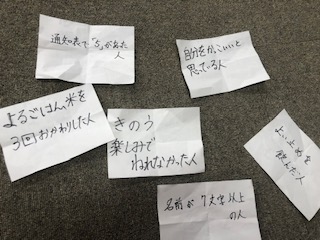 通知表で「5」が出た
人
自分をかっこいいと
思っている人
よるごはん、米を
3回おかわりした人
きのう
楽しみで
ねれなかった人
飲んだ人
名前が 7文字以上
の人